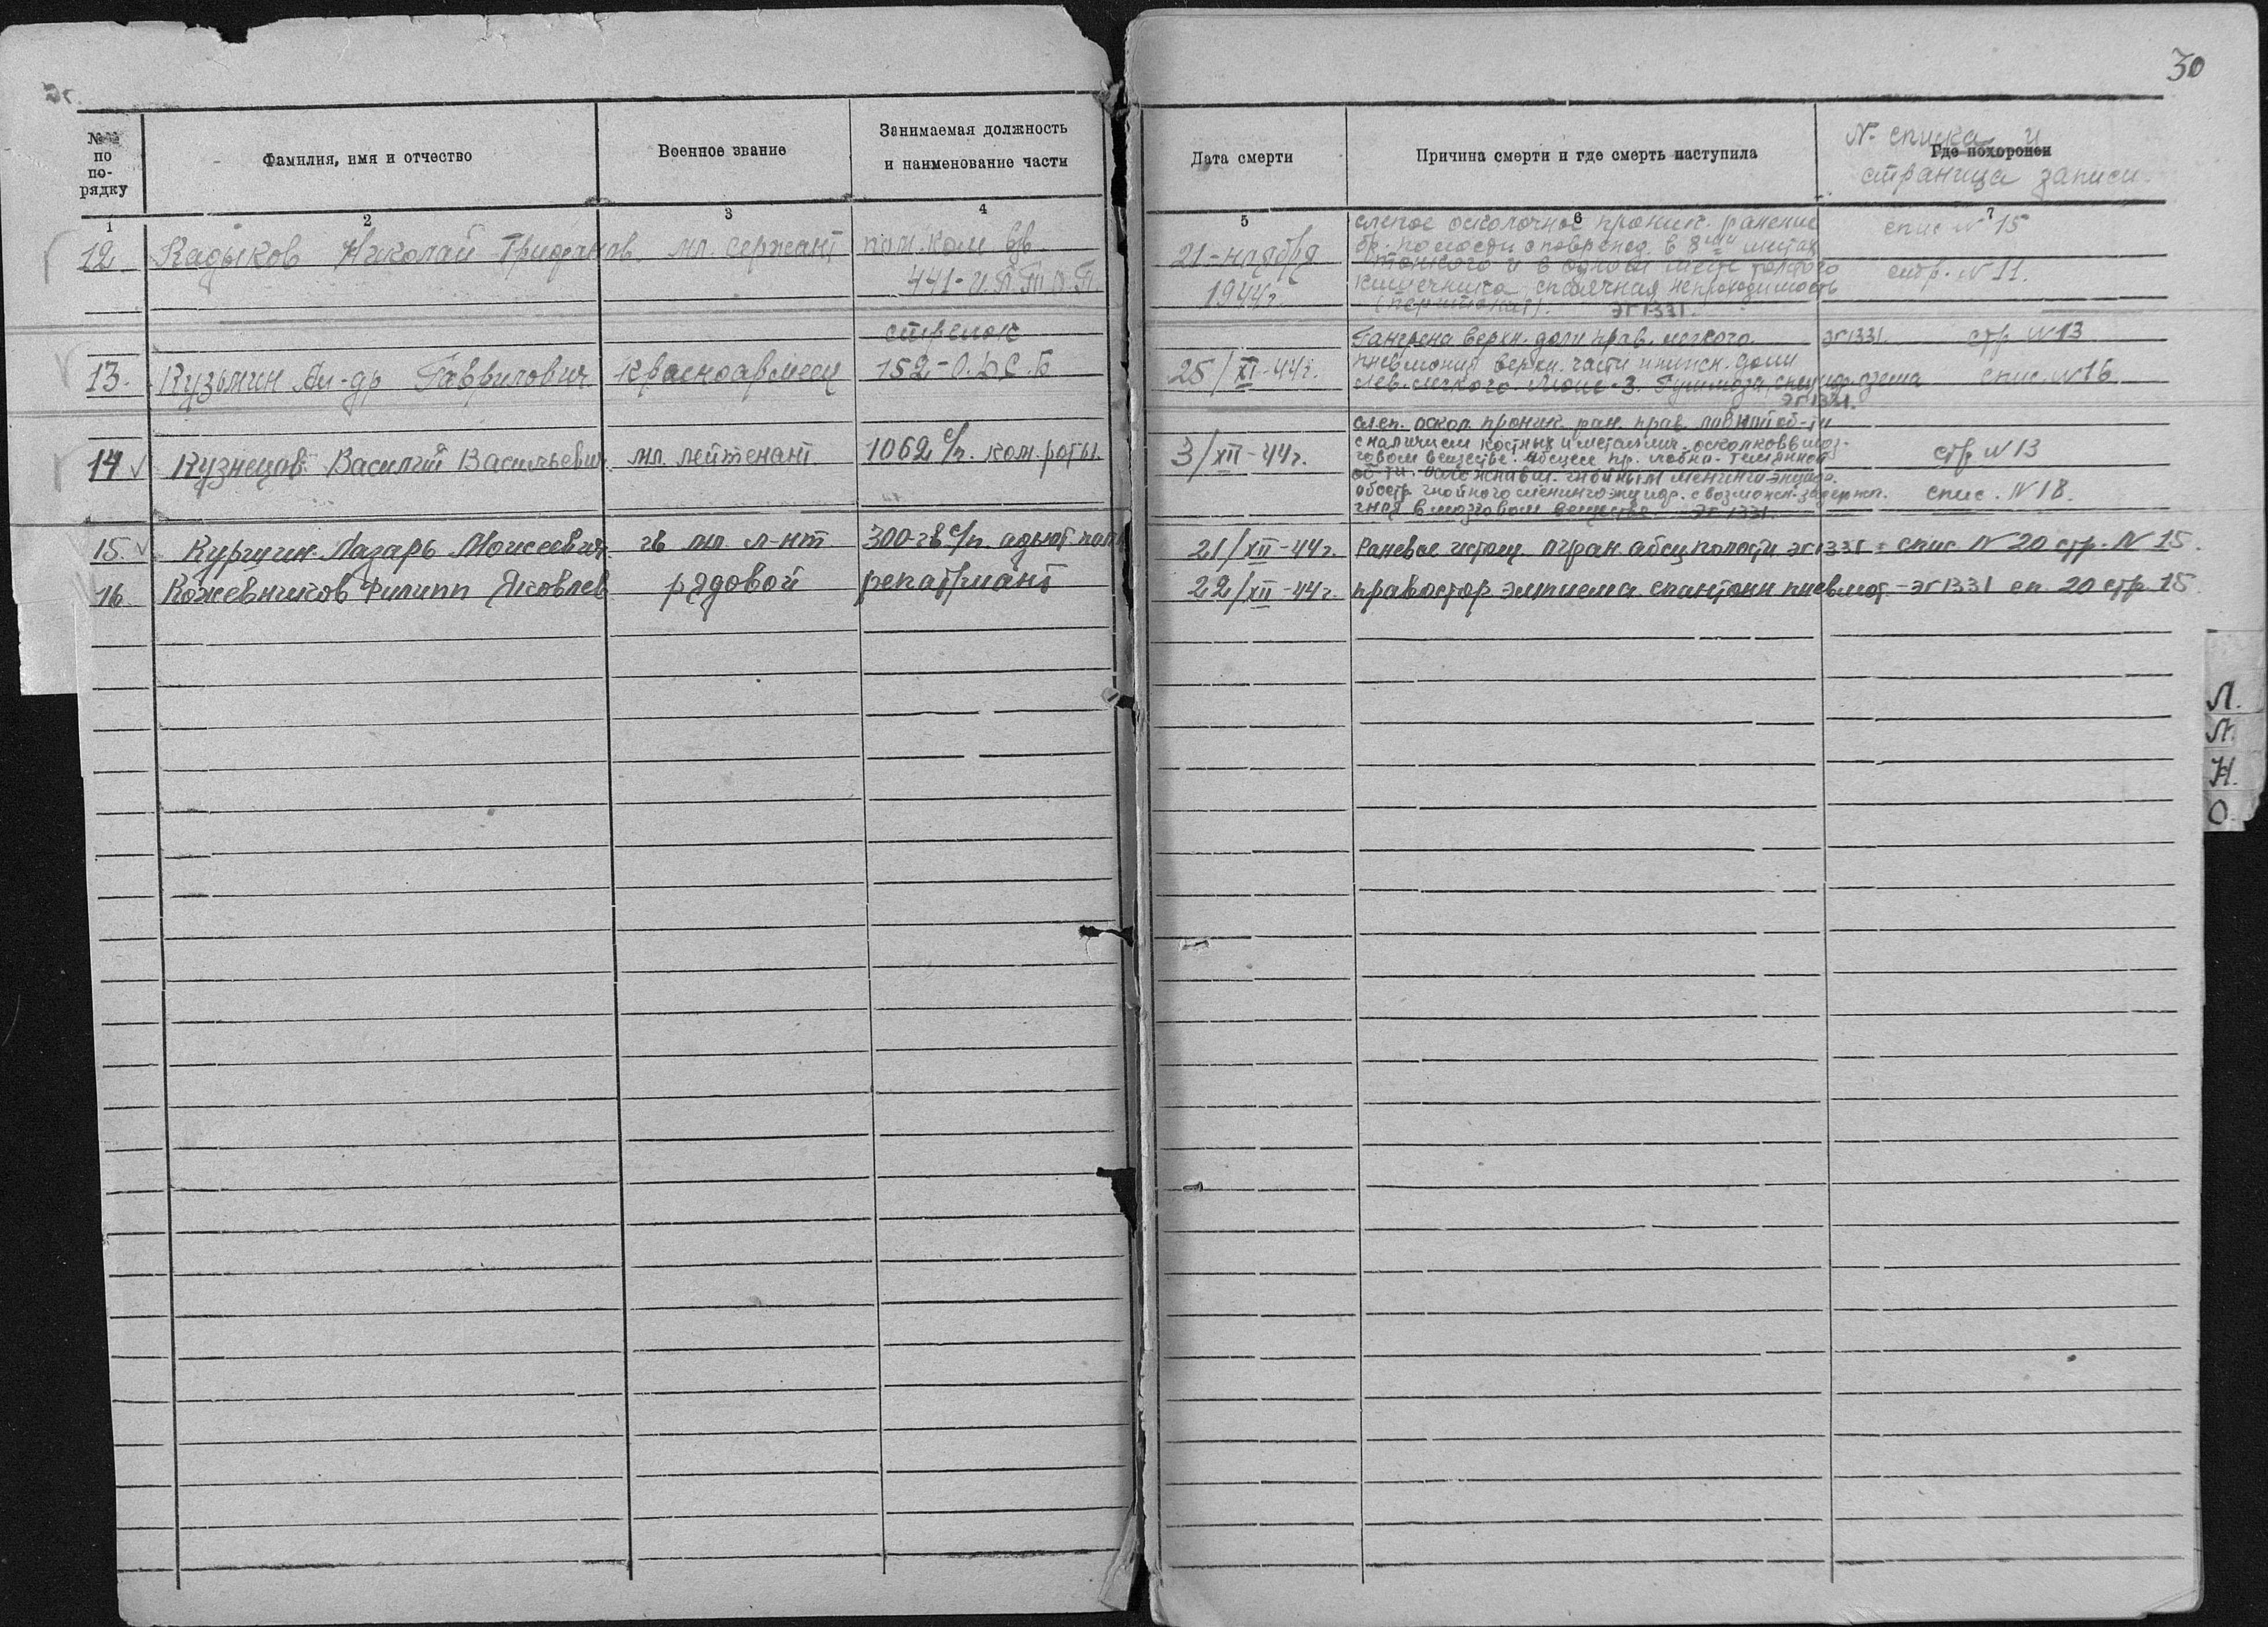 30
№№ по по- рядку
Фамилия, имя и отчество
Военное звание
Занимаемая должность и наименование части
Дата смерти
Причина смерти и где смерть наступила
Где похоронен
N- списка и
страница записи.
1 2 3 4 5 6 7
12 Кадыков Николай Трифанов. мл. сержант пом. ком вз.
441-И.П.Т.О.П.
21-ноября
1944г.
слепое осколочное проник. ранение
бр. полости с поврежд. в 8ми местах
тонкого и в одном месте толстого
кишечника, спаячная непроходимость
ЭГ 1331.
спис N 15
стр. N 11.
стрелок
13. Кузьмин Ал-др Гаврилович красноармеец 152-О.
25/XI-44г.
Гангрена верхн. доли прав. легкого
пневмония верхн. части и нижн. доли
лев. легкого.
ЭГ 1331.
ЭГ 1331 стр N 13
спис. N 16
14 Кузнецов Василий Васильевич мл. лейтенант 1062 с/п. ком. роты.
3/XII-44г.
слеп. оскол проник. ран. прав. лобной об-ти
с наличием костных и металлич. осколков в моз-
говом веществе. Абсцесс пр. лобно-теменной
об-ти. гнойным
обостр. гнойного с возможн.
гноя в мозговом веществе ЭГ 1331.
стр N 13
спис. N 18.
15. Курицин Лазарь Моисеевич гв мл л-нт 300-гв с/п. адъют
21/XII-44г. Раневое истощ ЭГ 1331 спис N 20 стр. N 15.
16 Кожевников Филипп Яковлев рядовой репатриант
22/XII-44г. правостор эмпиема спантонн пневмот. - ЭГ 1331 сп 20 стр. 15
Л.
М
Н.
О.